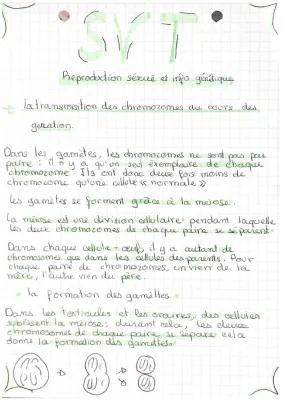 SVT
Reproduction sexué et info génétique
La transmission des chromosomes au cours des
géération.
Dans les gamètes, les chromosomes ne sont pas par
paire : il n'y a qu'un seul exemplaire de chaque
chromosome. Ils ont donc deux fois moins de
chromosome qu'une cellule « normale »
Les gamètes se forment grâce à la méiose.
La méiose est une division cellulaire pendant laquelle
les deux chromosomes de chaque paire se séparent
Dans chaque cellule-œuf, il y a autant de
chromosomes que dans les cellules des parents. Pour
chaque paire de chromosomes, un vient de la
mère, l'autre vien du père.
la formation des gamètes
Dans les testicules et les ovaires, des cellules
subissent la méiose : durant cela, les deux
chromosomes de chaque paire se sépare cela
donne la formation des gamettes.